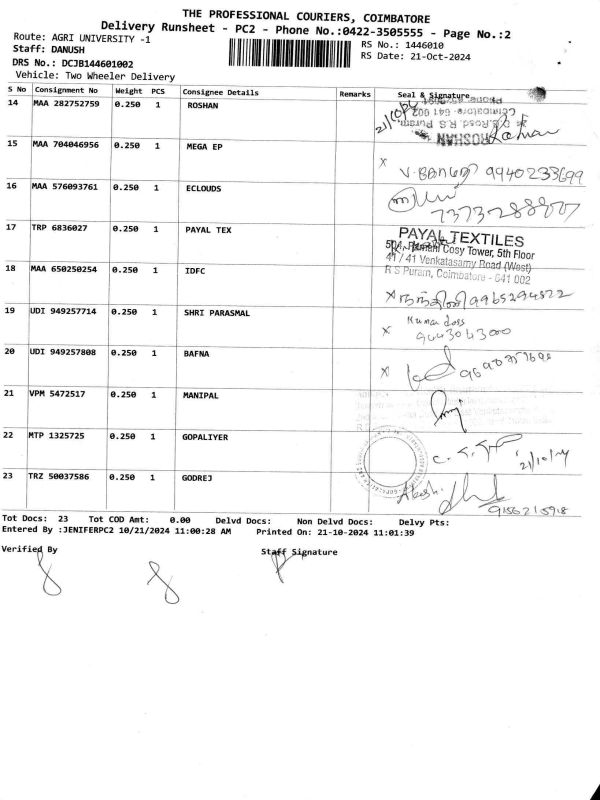 THE PROFESSIONAL COURIERS, COIMBATORE
Delivery Runsheet - PC2 - Phone No.:0422-3505555 - Page No.:2
Route: AGRI UNIVERSITY -1
RS No.: 1446010
Staff: DANUSH
RS Date: 21-Oct-2024
DRS No.: DCJB144601002
Vehicle: Two Wheeler Delivery
S No Consignment No Weight PCS Consignee Details Remarks Seal & Signature
14 MAA 282752759 0.250 1 ROSHAN
15 MAA 704046956 0.250 1 MEGA EP
x 9940233699
16 MAA 576093761 0.250 1 ECLOUDS
17 TRP 6836027 0.250 1 PAYAL TEX
PAYAL TEXTILES
Cosy Tower, 5th Floor
41 / 41 Venkatasamy Road (West)
R S Puram, Coimbatore - 641 002
18 MAA 650250254 0.250 1 IDFC
x
19 UDI 949257714 0.250 1 SHRI PARASMAL
Kumar doss
x
20 UDI 949257808 0.250 1 BAFNA
x
21 VPM 5472517 0.250 1 MANIPAL
22 MTP 1325725 0.250 1 GOPALIYER
21/10/24
23 TRZ 50037586 0.250 1 GODREJ
Akash.
9156215918
Tot Docs: 23 Tot COD Amt: 0.00 Delvd Docs: Non Delvd Docs: Delvy Pts:
Entered By :JENIFERPC2 10/21/2024 11:00:28 AM Printed On: 21-10-2024 11:01:39
Verified By Staff Signature